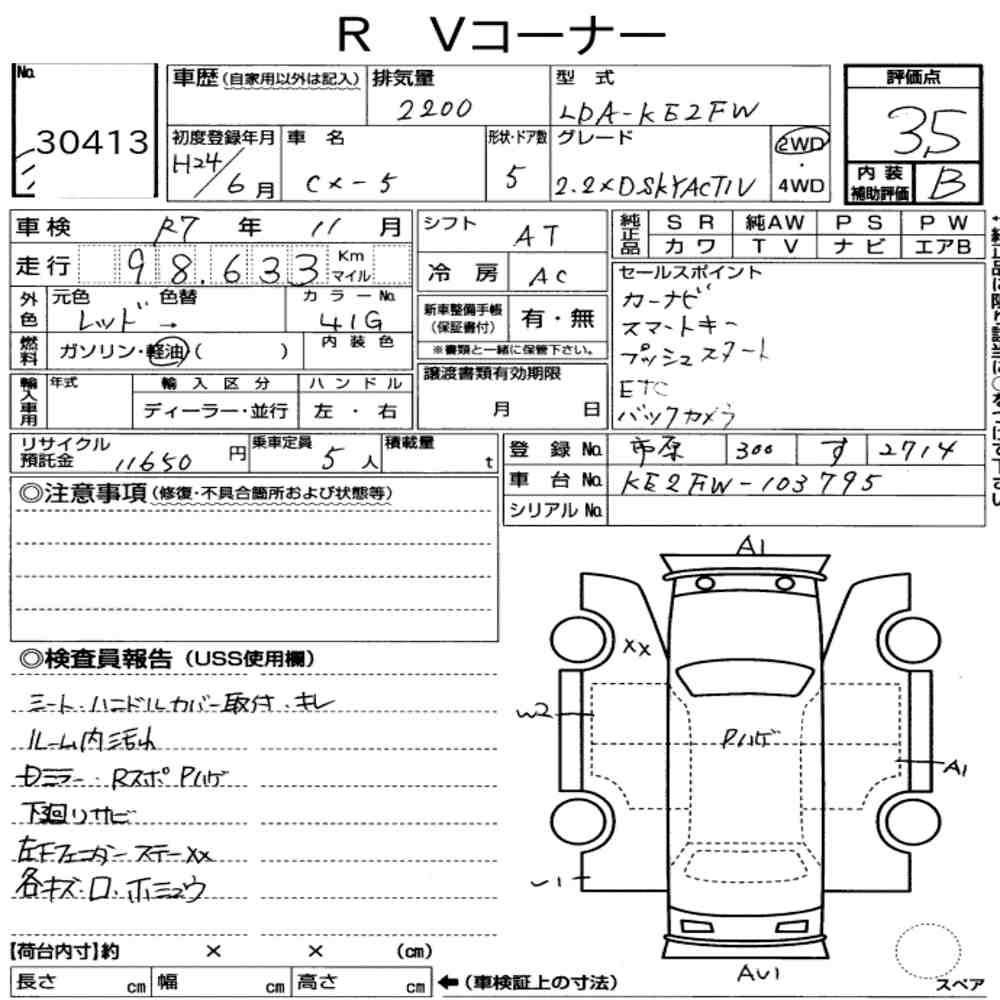 R Vコーナー
No. 30413
車歴(自家用以外は記入) 排気量 2200 型式 LDA-KE2FW
評価点 3.5
初度登録年月 H24/6月 車名 CX-5 形状・ドア数 5 グレード 2.2XD SKYACTIV 2WD・4WD
内装補助評価 B
車検 R7年 11月 シフト AT
純正品 SR 純AW PS PW
カワ TV ナビ エアB
走行 98.633 Km マイル 冷房 AC
セールスポイント
カーナビ
スマートキー
プッシュスタート
ETC
バックカメラ
外色 元色 レッド → 色替 カラーNo. 41G
新車整備手帳(保証書付) 有・無
※書類と一緒に保管下さい。
燃料 ガソリン・軽油( ) 内装色
輸入車用 年式 輸入区分 ハンドル
ディーラー・並行 左・右
譲渡書類有効期限
月 日
リサイクル預託金 11650円 乗車定員 5人 積載量 t
登録No. 市原 300 す 2714
車台No. KE2FW-103795
シリアルNo.
◎注意事項(修復・不具合箇所および状態等)
◎検査員報告(USS使用欄)
シート・ハンドルカバー取付・キレ
ルーム内汚れ
Dミラー・Rスポ Pハゲ
下廻りサビ
左Fフェンダーステー XX
各キズ・凹・ホシュウ
A1
XX
W2
Pハゲ
A1
U1
AU1
【荷台内寸】約 × × (cm)
長さ cm 幅 cm 高さ cm ←(車検証上の寸法)
スペア